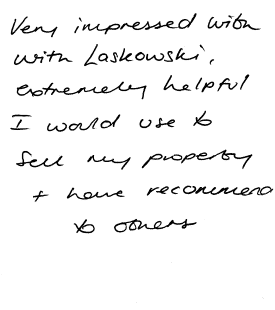 Very impressed with
with Laskowski,
extremely helpful
I would use to
sell my property
+ have recommend
to others